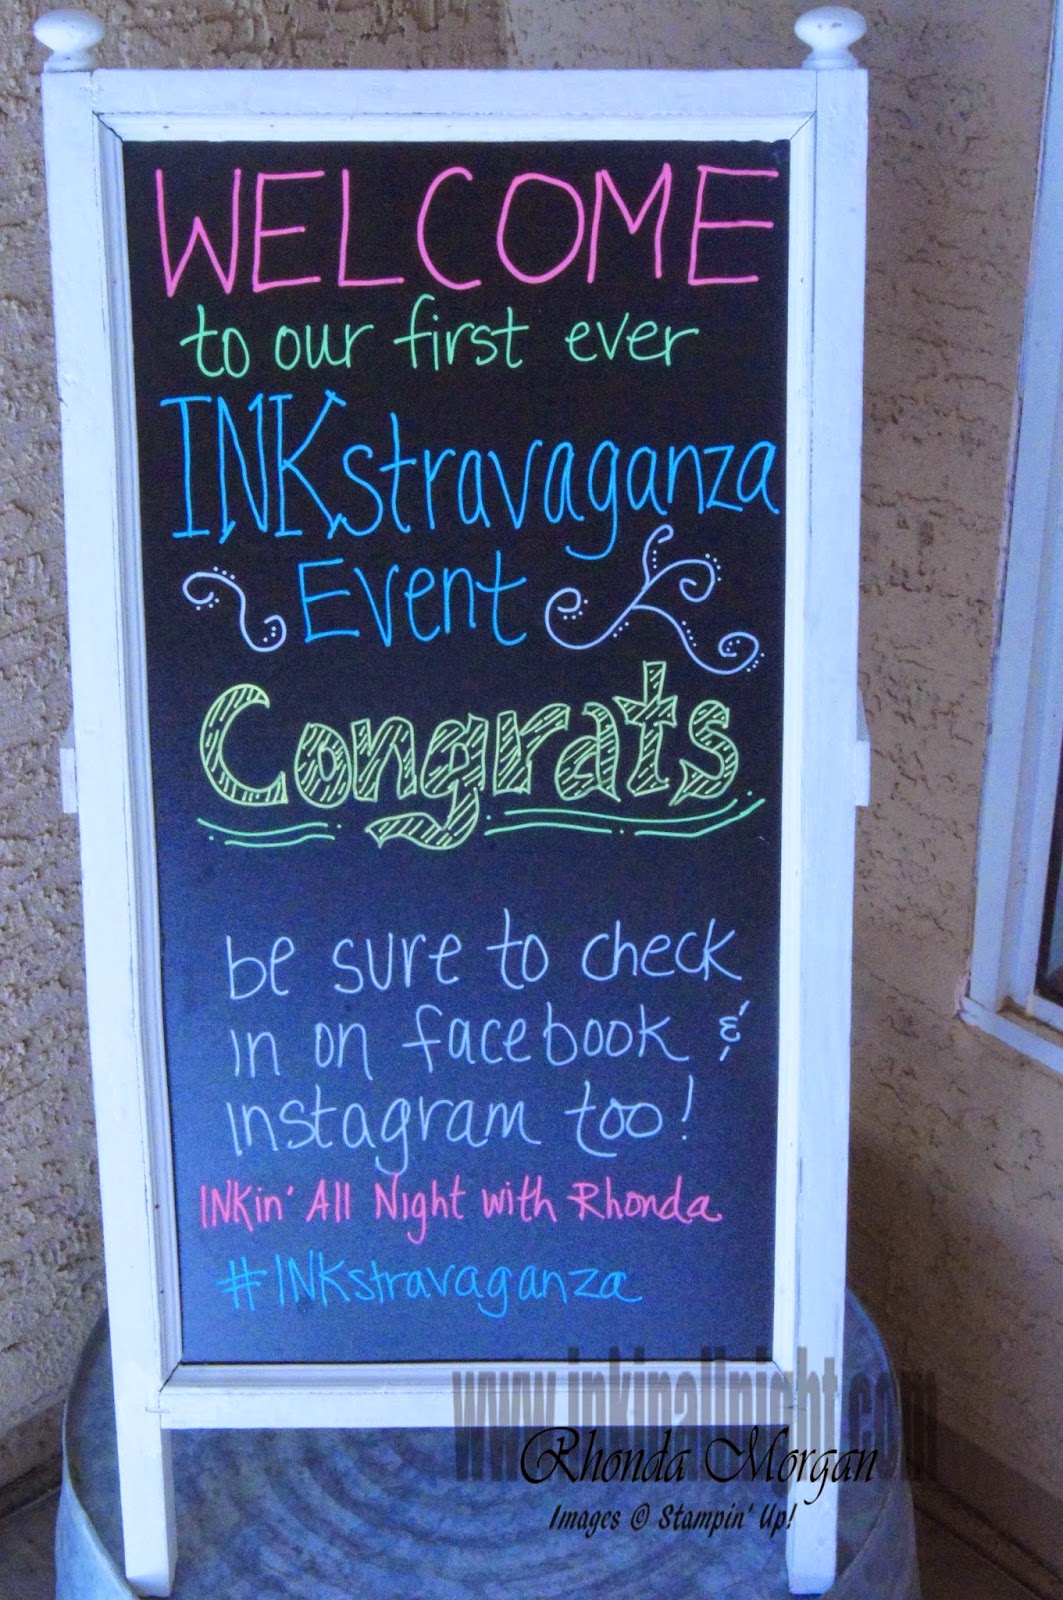 WELCOME
to our first ever
INKstravaganza
Event
Congrats
be sure to check
in on facebook &
instagram too!
INKin' All Night with Rhonda
#INKstravaganza
www.inkinallnight.com
Rhonda Morgan
Images © Stampin' Up!